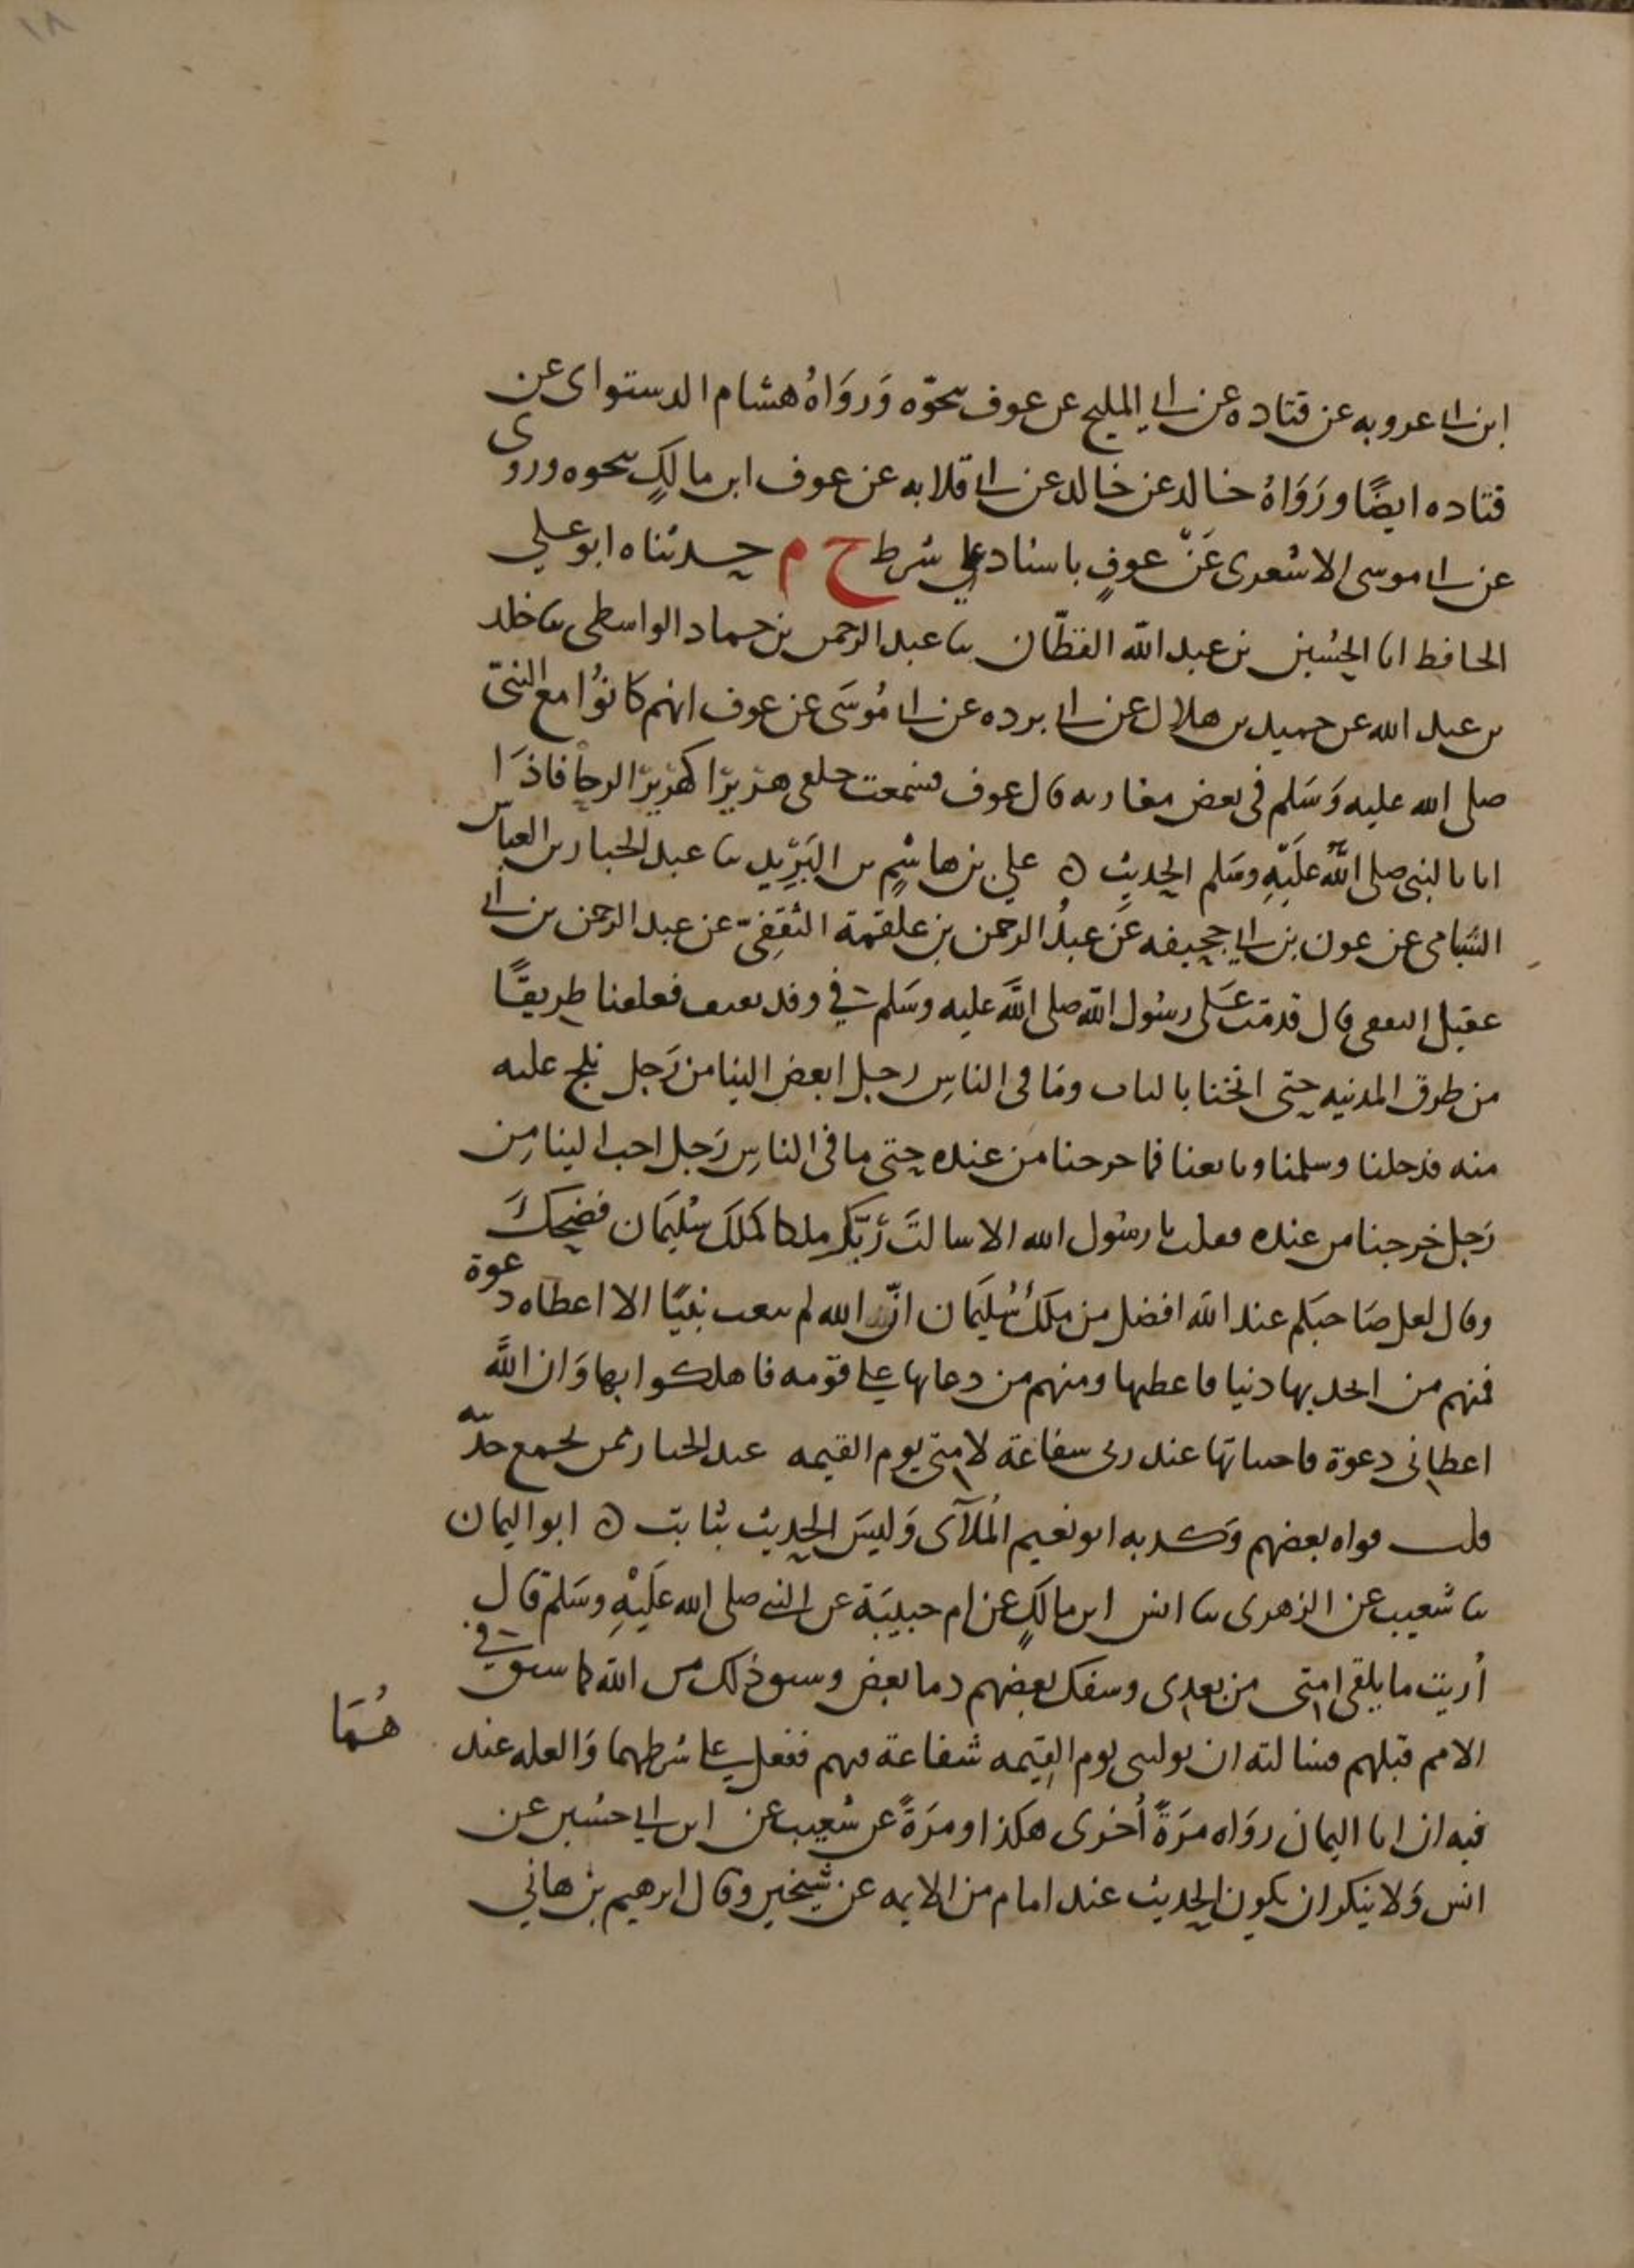 ١٨
ابن ابى عروبه عن قتاده عن ابى المليح عن عوف بنحوه وَروَاهُ هشام الدستواى عن
قتاده ايضًا ورَوَاهُ خالد عن خالد عن ابى قلابه عن عوف ابن مالكٍ بنحوه وروى
عن ابى موسى الاشعرى عَنْ عوفٍ باسناد على شرط خ م حدثناه ابو علي
الحافظ انا الحُسين بن عبد الله القطّان ثنا عبد الرحمن بن حماد الواسطى ثنا خلد
بن عبد الله عن حميد بن هلال عن ابى برده عن ابى مُوسَى عن عوف انهم كانوُا مع النبىّ
صلى الله عليه وَسَلم فى بعض مغازيه قال عوف فسمعت خلفى هزيزًا كهزيز الرحا فاذَا
انا بالنبى صلى اللَّه علَيْهِ وسَلم الحديث ه علي بن هاشمٍ بن البَرِيْد ثنا عبد الجبار بن العباس
الشبامى عن عون بن ابى جحيفه عَن عبدُ الرحمن بن علقمة الثقفِىّ عن عبد الرحمن بن ابى
عقيل الثقفى قال قدمت عَلى رسُول الله صلى اللَّه عليه وسَلم في وفد ثقيف فعلقنا طريقًا
من طرق المدنيه حتى انخنا بالباب ومَا فى الناسِ رجل ابغض الينا من رَجل نلج عليه
منه فدخلنا وسلمنا وبايعنا فما خرجنا من عنده حتى ما فى الناسِ رَجل احب الينا مِن
رَجل خرجنا من عنده فقلت يا رسُول الله الا سالتَ رَبَّكَ ملكا كمَلكَ سُليمَان فضحِكَ
وقال لعل صَاحبَكم عند الله افضل من ملكُ سُليمَان انَّ الله لم يبعث نبيًا الا اعطاه دعوة
فمنهم من اتخذ بها دنيا فاعطيها ومنهم من دعا بها على قوْمه فاهلكوا بها وَان اللَّه
اعطانى دعوة فاختباتها عند ربى شفاعَة لامتى يوم القيمه عبد الجبار ممن يجمع حديثه
قلت قواه بعضهم وَكذبه ابو نعيم المُلآى وَليسَ الحديث بثابت ه ابو اليمان
ثنا شعيب عن الزهرى ثنا انس ابن مالكٍ عن ام حبيبَة عن النبى صلى الله عَليْهِ وسَلم قال
أريت ما يلقى امتى من بعدى وسفك بعضهم دما بعض وسبق ذلك من الله كما سبق في
الامم قبلهم فسالته ان يولينى يوم القِيمه شفاعة فيهم ففعل على شرطهما وَالعله عند
هُمَا
فيه ان ابا اليمان روَاه مَرَةً أخرى هكذا ومرَةً عن شعيب عن ابن ابى حسُين عن
انس وَلا ينكر ان يكون الحديث عند امام من الايمه عن شيخين وقال ابرهيم بن هاني